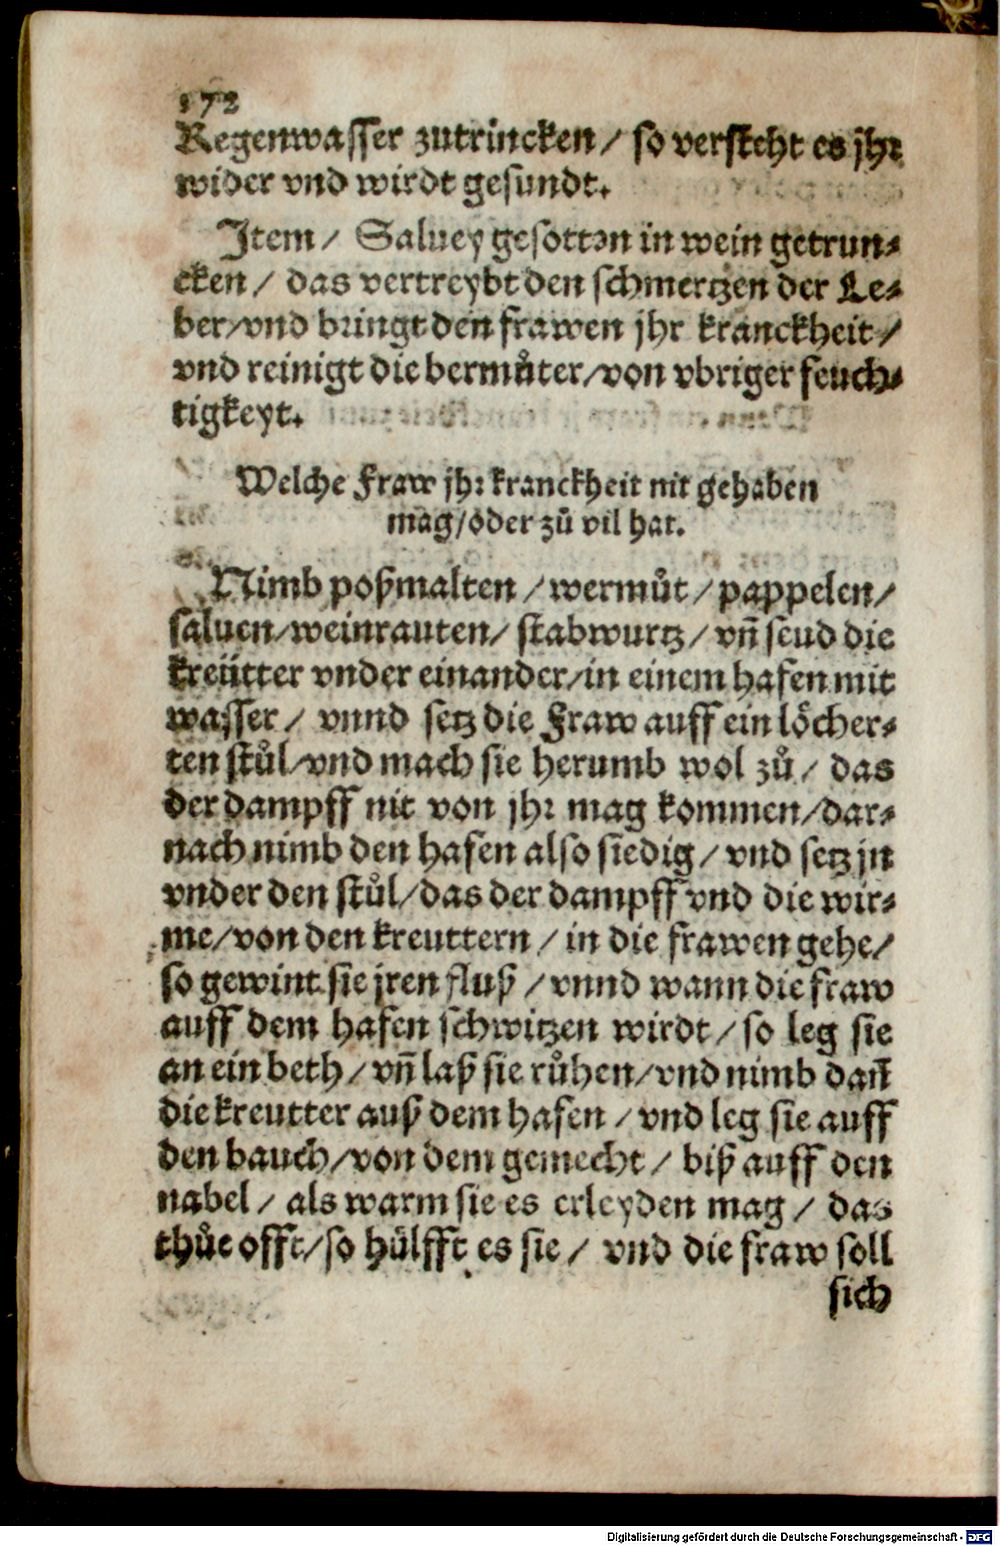 172
Regenwasser zutrincken / so versteht es jhr
wider vnd wirdt gesundt.
Item / Saluey gesotten in wein getrun⸗
cken / das vertreybt den schmertzen der Le⸗
ber / vnd bringt den frawen jhr kranckheit /
vnd reinigt die bermůter / von vbriger feuch⸗
tigkeyt.
Welche Fraw jhr kranckheit nit gehaben
mag / oder zů vil hat.
Nimb poßmalten / wermůt / pappelen /
saluen / weinrauten / stabwurtz / vñ seud die
kreütter vnder einander / in einem hafen mit
wasser / vnnd setz die Fraw auff ein löcher⸗
ten stůl / vnd mach sie herumb wol zů / das
der dampff nit von jhr mag kommen / dar⸗
nach nimb den hafen also siedig / vnd setz jn
vnder den stůl / das der dampff vnd die wir⸗
me / von den kreuttern / in die frawen gehe /
so gewint sie jren fluß / vnnd wann die fraw
auff dem hafen schwitzen wirdt / so leg sie
an ein beth / vñ laß sie růhen / vnd nimb dañ
die kreutter auß dem hafen / vnd leg sie auff
den bauch / von dem gemecht / biß auff den
nabel / als warm sie es erleyden mag / das
thůe offt / so hülfft es sie / vnd die fraw soll
sich
Digitalisierung gefördert durch die Deutsche Forschungsgemeinschaft - DFG